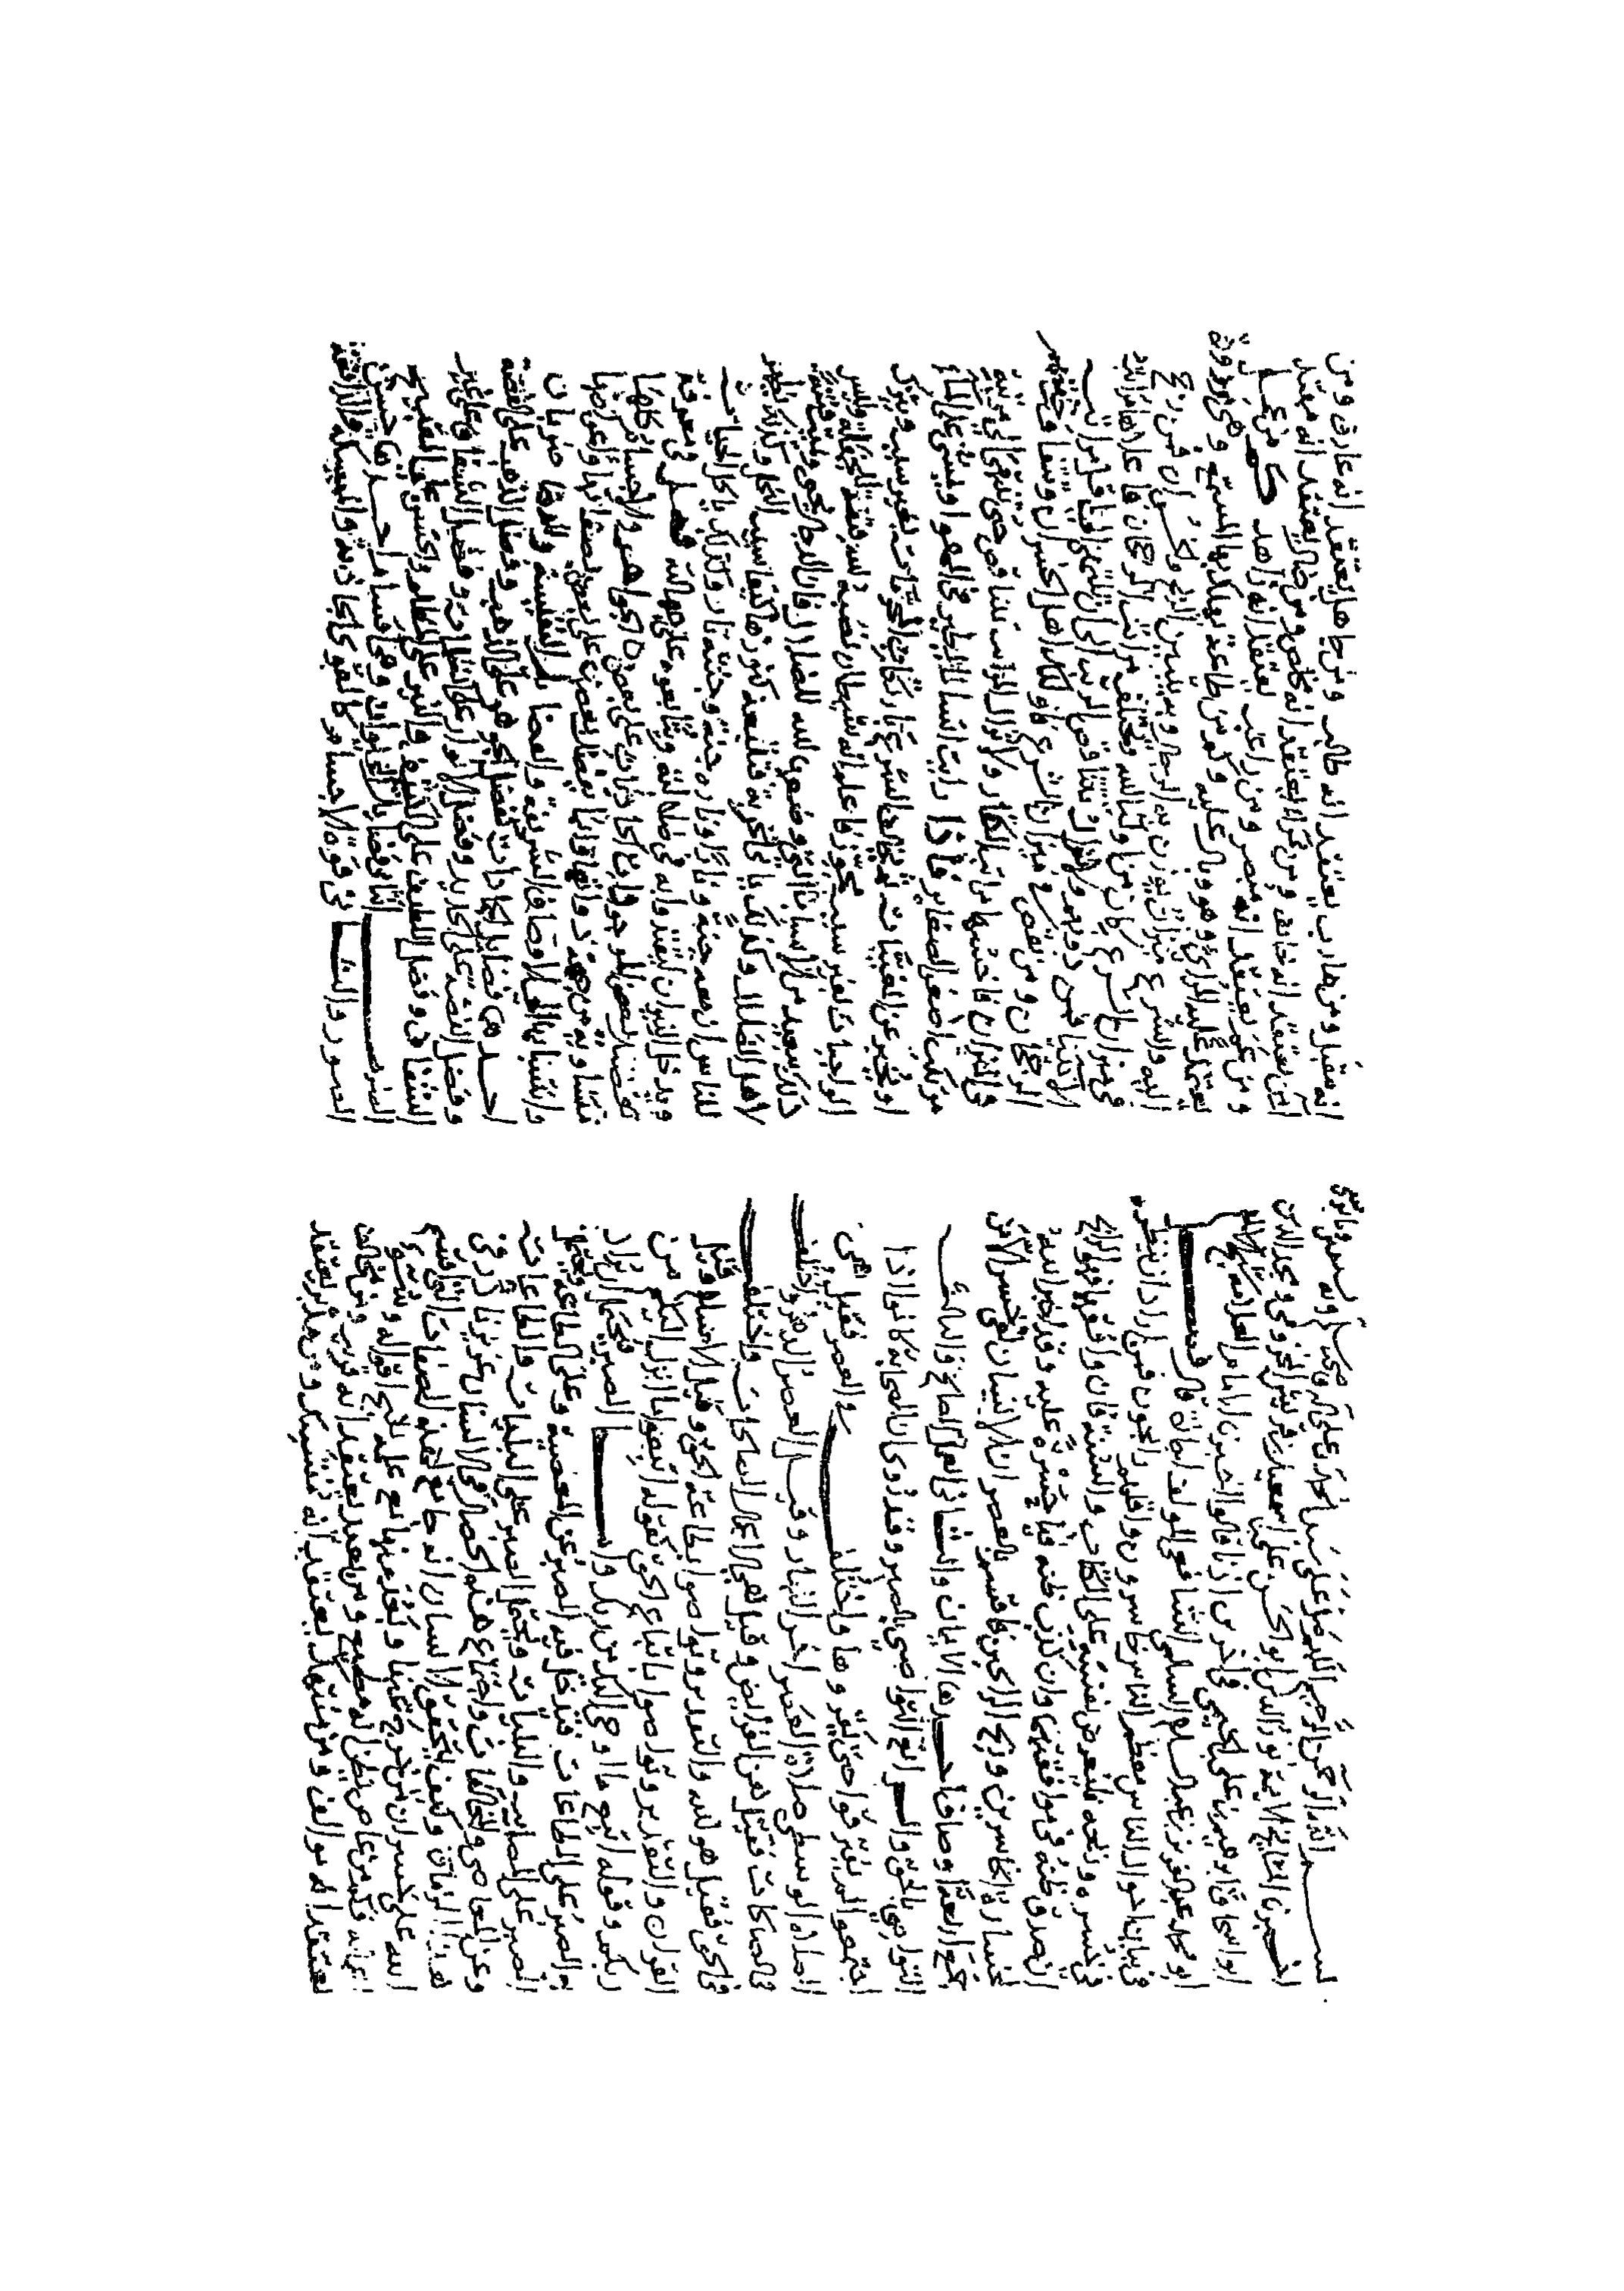 بسم الله الرحمن الرحيم صلى الله على سيدنا محمد وعلى آله وصحبه وسلم
اخبرنا المشايخ الايمة نور الدين ابو الحسن علي بن سعيد بن قريش المخزومي ومجد الدين
ابو اسحاق ابراهيم بن علي الخيمي واخرين اذنا قالوا اخبرنا الامام العلامة
ابو محمد عبد العزيز بن عبد السلام السلمي الشافعي قال فصل
في بيان احوال الناس معظم الناس خاسرون واقلهم رابحون فمن اراد ان ينظر
في خسره وربحه فليعرض نفسه على الكتاب والسنة فان وافقهما فهو الرابح
ان صدق ظنه في موافقتهما وان كذب ظنه فيا حسرة عليه وقد اخبر الله
بخسارة الخاسرين وربح الرابحين فاقسم بالعصر ان الانسان لفي خسر الا من
جمع اربعة اوصاف احدها الايمان والثاني العمل الصالح والثالث
التواصي بالحق والرابع التواصي بالصبر وقد روي ان الصحابة كانوا اذا
اجتمعوا لم يفترقوا حتى يقروها واختلف في العصر فقيل هي
الصلاة الوسطى صلاة العصر اخر النهار وقيل العصر الدهر واختلف
في الصالحات فقيل هن الفرايض وقيل هي الاعمال الصالحات واختلف
في الحق فقيل هو الله والتقدير وتواصوا بطاعة الحق وقيل الاسلام وقيل
القران والتقدير وتواصوا باتباع الحق كقوله اتبعوا ما انزل اليكم من
ربكم وقوله اتبع ما اوحي اليك من ربك واما الصبر فيحتمل ان يراد
به الصبر على الطاعات فيدخل فيه الصبر عن المعصية وعلى الطاعة ويحتمل
الصبر على المصايب والبليات ويحتمل الصبر على البليات والطاعات
وعن المعاصي والمخالفات واجتماع هذه الخصال في الانسان عزيز نادر في
هذا الزمان وكيف يتحقق الانسان انه جامع لهذه الصفات التي اقسم
الله على خسران من خرج عنها وبعد منها مع علمه بقبح اقواله وسوء
اعماله فكم من عاص يظن انه مطيع ومن بعيد يعتقد انه قريب ومن مخالف
يعتقد انه موالف ومن منتهك يعتقد انه متنسك ومن مدبر يعتقد
انه مقبل ومن هارب يعتقد انه طالب ومن جاهل يعتقد انه عارف ومن
آمن يعتقد انه خايف ومن مراء يعتقد انه مخلص ومن ضال يعتقد انه مهتد
ومن عم يعتقد انه مبصر ومن راغب يعتقد انه زاهد وكم من عمل
يعتمد عليه المرائي وهو وبال عليه وكم من طاعة يهلك بها المسمع وهي مردودة
اليه والشرع ميزان يوزن به الرجال وبه يتبين الربح من الخسران فمن رجح
في ميزان الشرع كان من اولياء الله وتختلف مراتب الرجحان فاعلاها مراتب
الانبياء فمن دونهم ولا تزال تتناقص الرتب الى ان تنتهي الى اقل مراتب
الرجحان ومن نقص في ميزان الشرع فاولئك اهل الخسران وتتفاوت خفتهم
في الميزان فاخسها مراتب الكفار ولا تزال المراتب تتناقص حتى تنتهي الى مرتبة
مرتكب اصغر الصغاير فاذا رايت انسانا يطير في الهوا ويمشي على الماء
او يخبر عن المغيبات ثم يخالف الشرع بارتكاب المحرمات بغير سبب ويترك
الواجبات بغير سبب مجوز فاعلم انه شيطان نصبه الله فتنة للجهلة وليس
ذلك ببعيد من الاسباب التي وضعها الله للضلال فان الدجال يحيي ويميت فتنة
لاهل الضلال وكذلك ياتي الخربة فتتبعه كنوزها كيعاسيب النحل وكذلك يظهر
للناس ان معه جنة ونارا وناره جنة وجنته نار وكذلك ياكل الحيات
ويدخل النيران ليقتدوا به في ضلالته ويتابعوه على جهالته فصل في معرفة
تفضيل بعض الموجودات الحادثات على بعض الجواهر والاجسام كلها
متساوية من جهة ذواتها وانما يفضل بعضها على بعض بصفاتها واعراضها
وانتسابها الى الاوصاف الشريفة والفضايل النفيسة والفضايل ضربان
احدهما فضايل الجمادات كفضل الجوهر على الذهب وفضل الذهب على الفضة
وفضل الفضة على الحديد وفضل الانوار على الظلمات وفضل الشفاف على غير
الشفاف وفضل اللطيف على الكثيف والنير على المظلم والحسن على القبيح
الضرب الثاني فضايل الحيوان وهي اقسام احدها حسن
الصور والثاني قوة الاجسام كالقوى الجاذبة والممسكة والدافعة